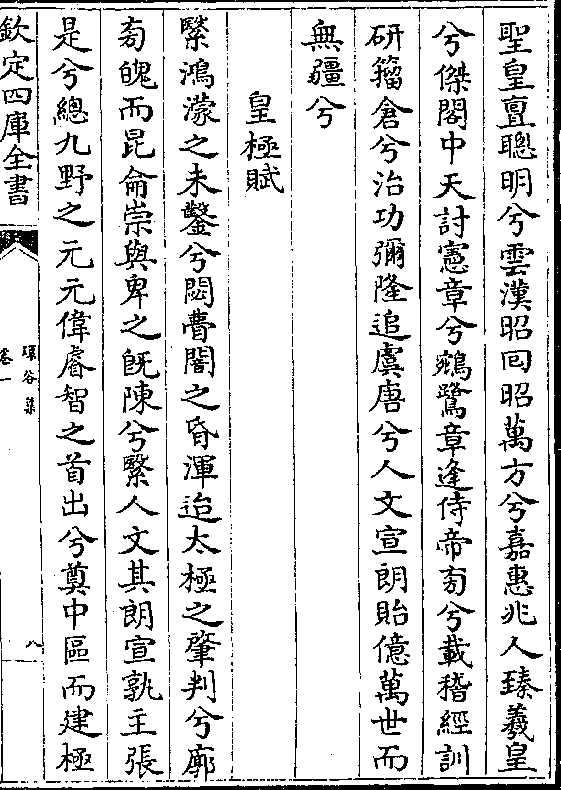 聖皇亶聰明兮雲漢昭回昭萬方兮嘉惠兆人臻羲皇
兮傑閣中天討憲章兮鵷鷺章逢侍帝旁兮載稽經訓
研籀倉兮治功彌隆追虞唐兮人文宣朗貽億萬世而
無疆兮
皇極賦
緊鴻濛之未鑿兮閟瞢闇之昏渾迨太極之肇判兮廓
旁魄而昆侖崇與卑之旣陳兮繄人文其朗宣孰主張
是兮總九野之元元偉睿智之首出兮奠中區而建極
欽定四庫全書
環谷集
卷一
八